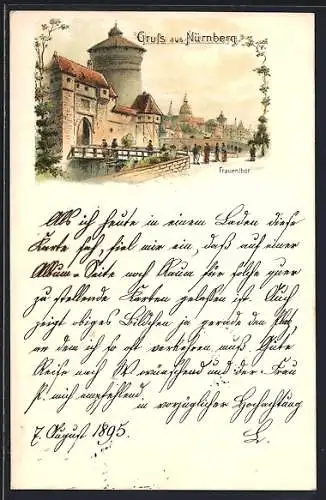 Gruss aus Nürnberg.
Frauenthor
Als ich heute in einem Laden diese
Karte sah fiel mir ein, daß auf einer
Album-Seite noch Raum für solche quer
zu stellende Karten gelassen ist. Auch
zeigt obiges Bildchen ja gerade den Platz
an dem ich so oft verkehren muß. Gute
Reise nach W. wünschend und der Frau
P. mich empfehlend
in vorzüglicher Hochachtung
7. August 1895.
L.